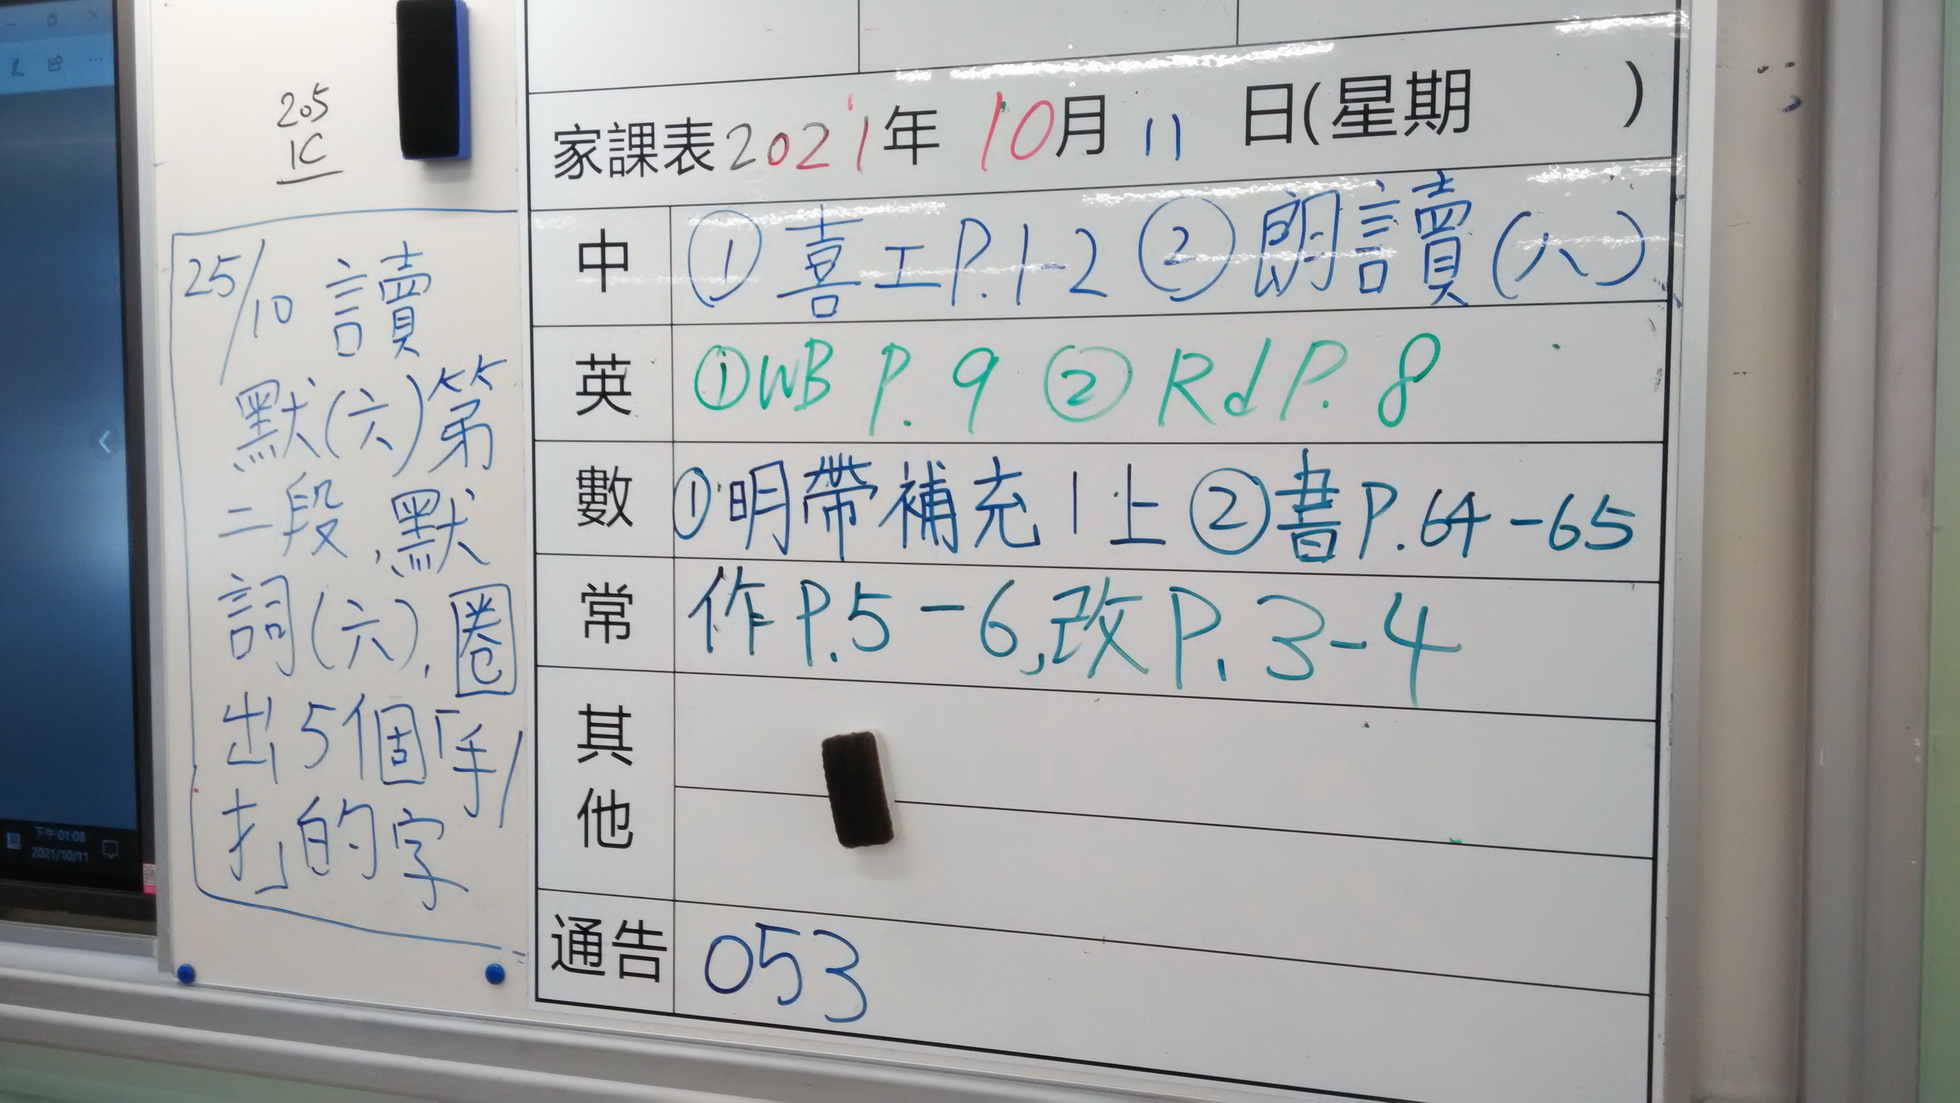 205
1C
25/10 讀
默(六)第
二段,默
詞(六),圈
出5個「手/
扌」的字
家課表2021年 10月 11 日(星期 )
中 ① 喜工P.1-2 ② 朗讀(六)
英 ①WB P.9 ② Rd P.8
數 ①明帶補充1上 ②書P.64-65
常 作P.5-6,改P.3-4
其他
通告 053
下午 01:08
2021/10/11